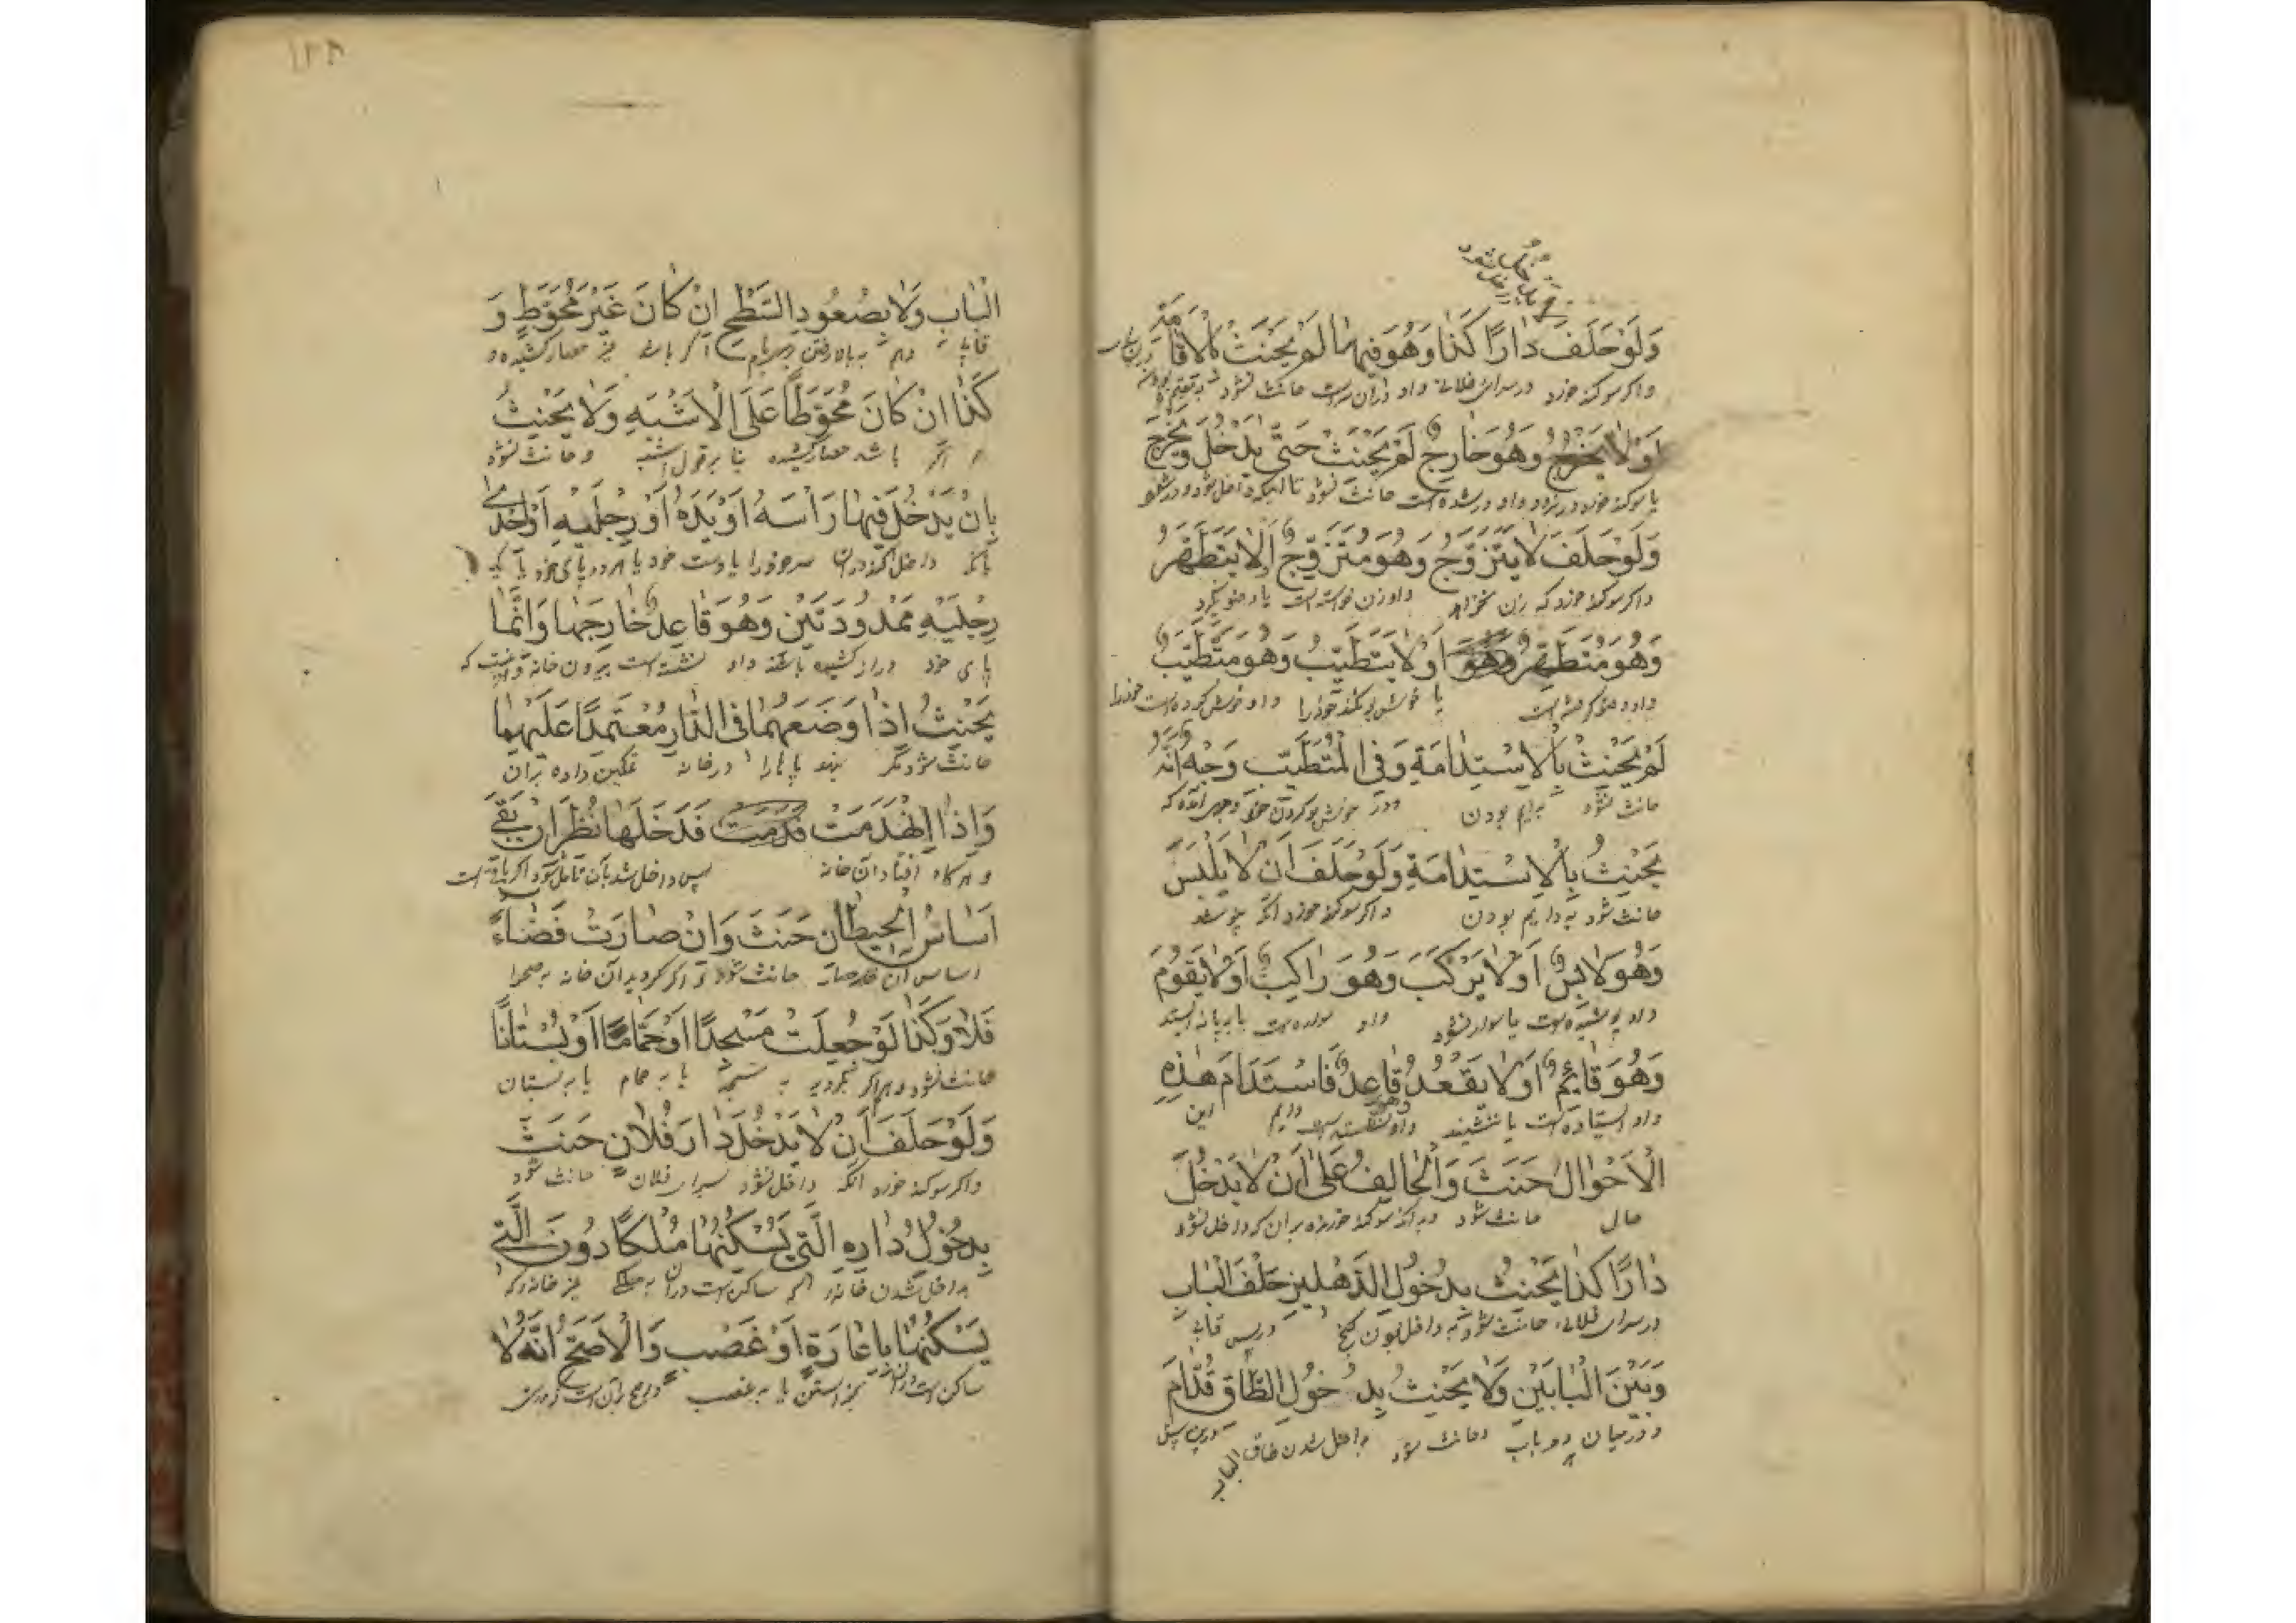 وَلَوْ حَلَفَ دَارًا كَذَا وَهُوَ فِيهَا لَمْ يَحْنَثْ بِالْاِقَامَةِ
واكر سوكند خورد در سراى فلانى واو در آن سراست حانث نشود
اَوْ لَا يَخْرُجُ وَهُوَ خَارِجٌ لَمْ يَحْنَثْ حَتَّى يَدْخُلَ وَيَخْرُجَ
يا سوكند خورد واو در شده است حانث نشود تا آنكه داخل شود
وَلَوْ حَلَفَ لَا يَتَزَوَّجُ وَهُوَ مُتَزَوِّجٌ اَوْ لَا يَتَطَهَّرُ
واكر سوكند خورد كه زن نخواهد واو زن خواسته است يا وضو نكيرد
وَهُوَ مُتَطَهِّرٌ اَوْ لَا يَتَطَيَّبُ وَهُوَ مُتَطَيِّبٌ
يا خوش بو نكند خود را واو خوش كرده است خود را
لَمْ يَحْنَثْ بِالْاِسْتِدَامَةِ وَفِى الْمُتَطَيِّبِ وَجْهٌ اَنَّهُ
حانث نشود بدايم بودن ودر خوش بو كردن
يَحْنَثُ بِالْاِسْتِدَامَةِ وَلَوْ حَلَفَ اَنْ لَا يَلْبَسَ
حانث شود به دايم بودن واكر سوكند خورد آنكه نپوشد
وَهُوَ لَابِسٌ اَوْ لَا يَرْكَبَ وَهُوَ رَاكِبٌ اَوْ لَا يَقُومَ
واو پوشيده است يا سوار نشود واو سواره است يا به پا نه ايستد
وَهُوَ قَائِمٌ اَوْ لَا يَقْعُدُ وَهُوَ قَاعِدٌ فَاسْتَدَامَ هٰذِهِ
واو ايستاده است يا ننشيند واو نشسته است دايم اين
الْاَحْوَالَ حَنَثَ وَالْحَالِفُ عَلَى اَنْ لَا يَدْخُلَ
حالى حانث شود سوكند خورده بر آن كه داخل نشود
دَارًا كَذَا يَحْنَثُ بِدُخُولِ الدِّهْلِيزِ خَلْفَ الْبَابِ
در سراى فلانى حانث شود به داخل بودن
وَبَيْنَ الْبَابَيْنِ وَلَا يَحْنَثُ بِدُخُولِ الطَّاقِ قُدَّامَ
ودر ميان دو باب وحانث نشود بداخل شدن طاق
الباب
١٢٨
الْبَابِ وَلَا بِصُعُودِ السَّطْحِ اِنْ كَانَ غَيْرَ مُحَوَّطٍ وَ
به بالا رفتن اكر باشد غير حصار كشيده و
كَذَا اِنْ كَانَ مُحَوَّطًا عَلَى الْاَشْبَهِ وَلَا يَحْنَثُ
اكر باشد حصار كشيده بنا بر قول اشبه وحانث نشود
بِاَنْ يَدْخُلَ فِيهَا رَاْسَهُ اَوْ يَدَهُ اَوْ رِجْلَيْهِ اَوْ اِحْدٰى
داخل كند در آن سر خود را يا دست خود يا هر دو پاى خود يا يك
رِجْلَيْهِ مَمْدُودَتَيْنِ وَهُوَ قَاعِدٌ خَارِجَهَا وَاِنَّمَا
پاى خود دراز كشيده باشد واو نشسته است بيرون خانه
يَحْنَثُ اِذَا وَضَعَهُمَا فِى الدَّارِ مُعْتَمِدًا عَلَيْهِمَا
حانث شود مكر بنهد پاها را در خانه تمكين داده بر آن
وَاِذَا اِنْهَدَمَتْ فَدَخَلَهَا نُظِرَ اِنْ بَقِىَ
وهر كاه افتاد آن خانه پس داخل شد بآن تامل شود اكر باقى است
اَسَاسُ الْحِيطَانِ حَنَثَ وَاِنْ صَارَتْ فَضَاءً
اساس آن حصار حانث شود واكر كرديد آن خانه به صحرا
فَلَا وَكَذَا لَوْ جُعِلَتْ مَسْجِدًا اَوْ حَمَّامًا اَوْ بُسْتَانًا
حانث نشود به مسجد يا به حمام يا به بستان
وَلَوْ حَلَفَ اَنْ لَا يَدْخُلَ دَارَ فُلَانٍ حَنَثَ
واكر سوكند خورد آنكه داخل نشود بسراى فلان حانث شود
بِدُخُولِ دَارِهِ الَّتِى يَسْكُنُهَا مُلْكًا دُونَ الَّتِى
بداخل شدن خانه كه ساكن است در آن به ملك غير خانه كه
يَسْكُنُهَا بِاِعَارَةٍ اَوْ غَصْبٍ وَالْاَصَحُّ اَنَّهُ لَا
ساكن است يا به غصب